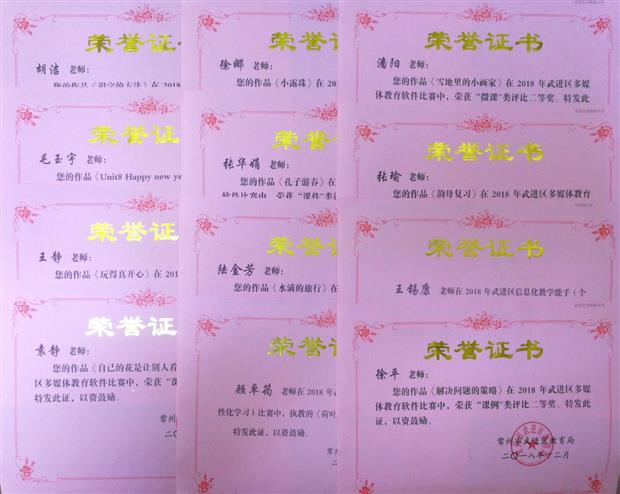 荣誉证
胡洁 老师：
您的作品《识字的方法》在 2018
荣誉证
徐娜 老师：
您的作品《小露珠》在 20
荣誉证书
潘阳 老师：
您的作品《雪地里的小画家》在 2018 年武进区多媒
体教育软件比赛中，荣获“微课”类评比二等奖。特发此
荣誉证
毛玉宇 老师：
您的作品《Unit8 Happy new ye
荣誉证
张华娟 老师：
您的作品《孔子游春》在
软件比赛中，荣获“课件”类评
荣誉证书
张瑜 老师：
您的作品《韵母复习》在 2018 年武进区多媒体教育
荣誉证
王静 老师：
您的作品《玩得真开心》在 201
荣誉证
陆金芳 老师：
您的作品《水滴的旅行》在
荣誉证书
王锡康 老师在 2018 年武进区信息化教学能手（个
荣誉证
袁静 老师：
您的作品《自己的花是让别人看
区多媒体教育软件比赛中，荣获“课
发此证，以资鼓励。
常州
二〇
荣誉证
顾卓筠 老师在 2018 年
性化学习）比赛中，执教的《荷叶
特发此证，以资鼓励。
荣誉证书
徐平 老师：
您的作品《解决问题的策略》在 2018 年武进区多媒
体教育软件比赛中，荣获“课例”类评比二等奖。特发此
证，以资鼓励。
常州市武进区教育局
二〇一八年十二月